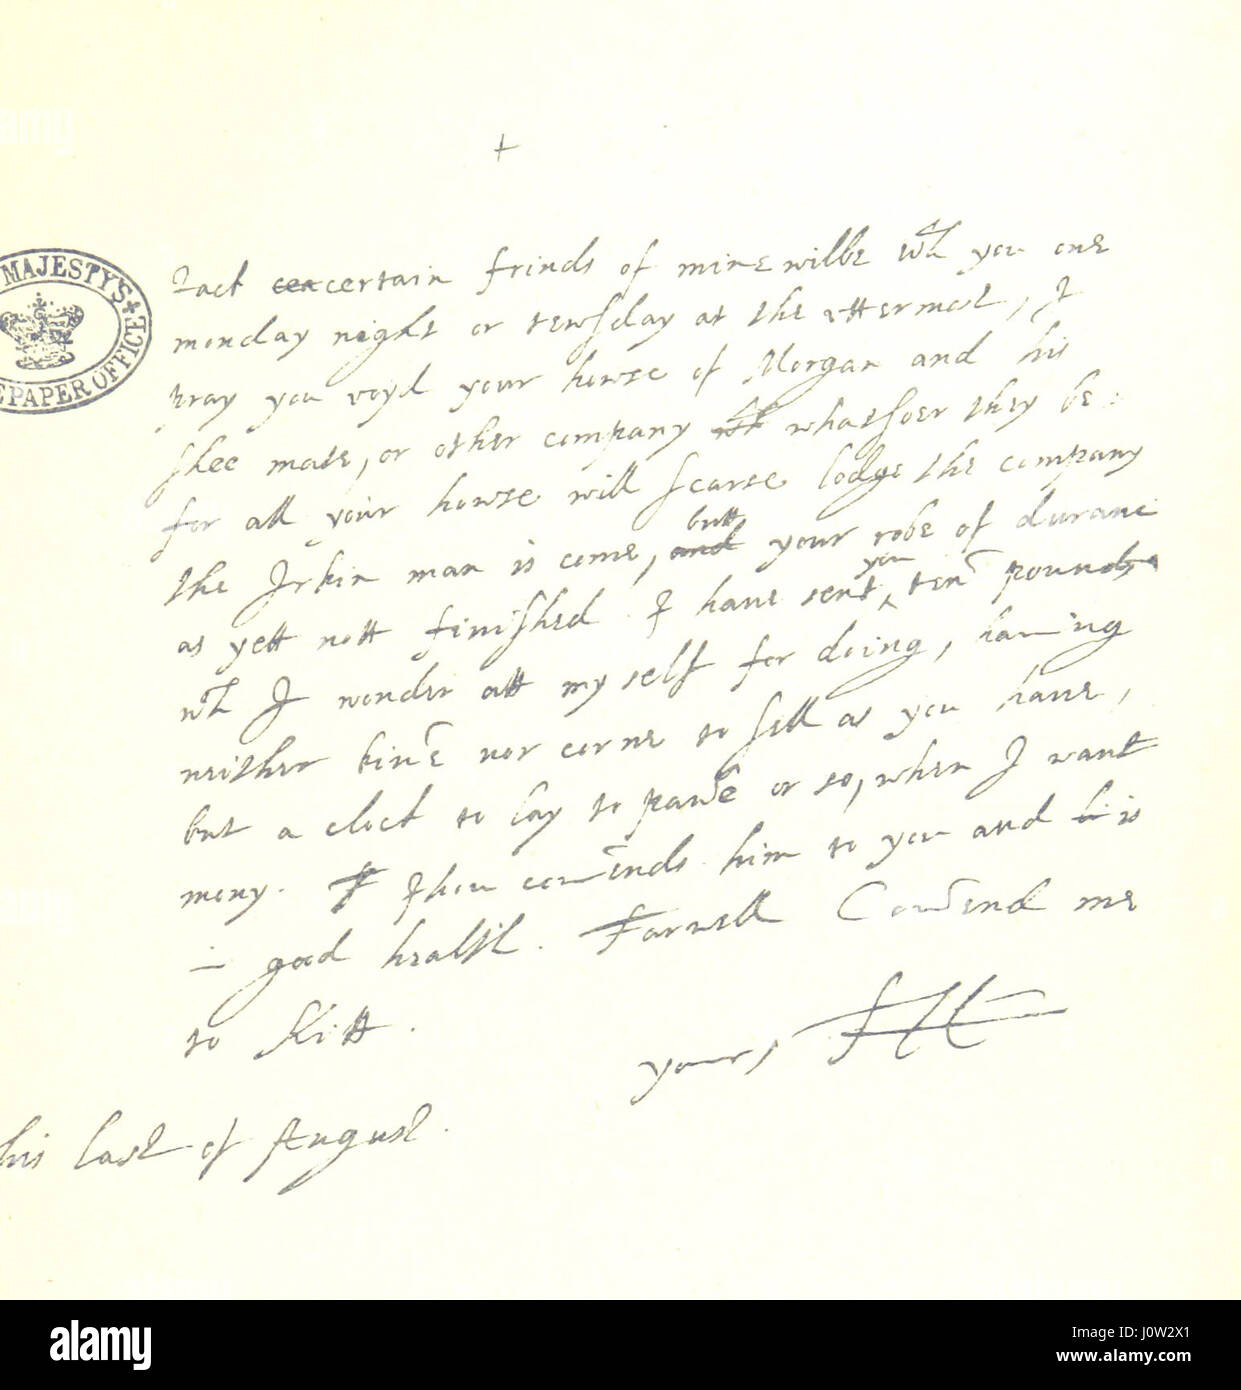 +
MAJESTY'S
PAPER OFFICE
Jack cea certain frinds of mine wilbe wth you one
monday night or tewsday at the uttermost, I
pray you voyd your howse of Morgan and his
shee mate, or other company whatsoer they be
for all your howse will scarse lodge the company
the Jrkin man is come, and butt your robe of durance
as yett nott finished I haue sent you ten pounds
wch I wonder att my self for doing, having
neither kine nor corne to sell as you haue,
but a clock to lay to pawne or so, when I want
mony. Thou comends him to you and is
in good health. Farwell Comend me
to Kitt.
yours,
his last of August.
alamy
J0W2X1
www.alamy.com